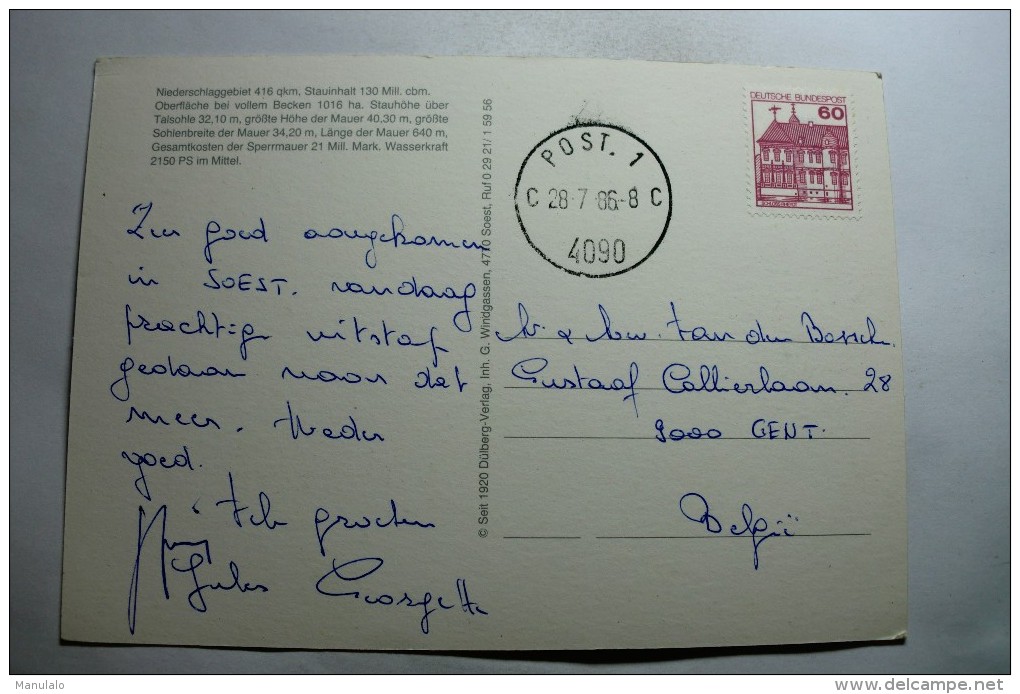 Niederschlaggebiet 416 qkm, Stauinhalt 130 Mill. cbm.
Oberfläche bei vollem Becken 1016 ha. Stauhöhe über
Talsohle 32,10 m, größte Höhe der Mauer 40,30 m, größte
Sohlenbreite der Mauer 34,20 m, Länge der Mauer 640 m,
Gesamtkosten der Sperrmauer 21 Mill. Mark. Wasserkraft
2150 PS im Mittel.
Zeer goed aangekomen
in SOEST. vandaag
prachtige uitstap
gedaan naar dat
meer. Weder
goed.
groeten
Jules Georgette
© Seit 1920 Dülberg-Verlag, Inh. G. Windgassen, 4770 Soest, Ruf 0 29 21/1 59 56
POST. 1
C 28-7-86-8 C
4090
DEUTSCHE BUNDESPOST
60
Van den Bossche
Gustaaf Callierlaan. 28
9000 GENT.
België
Manulalo